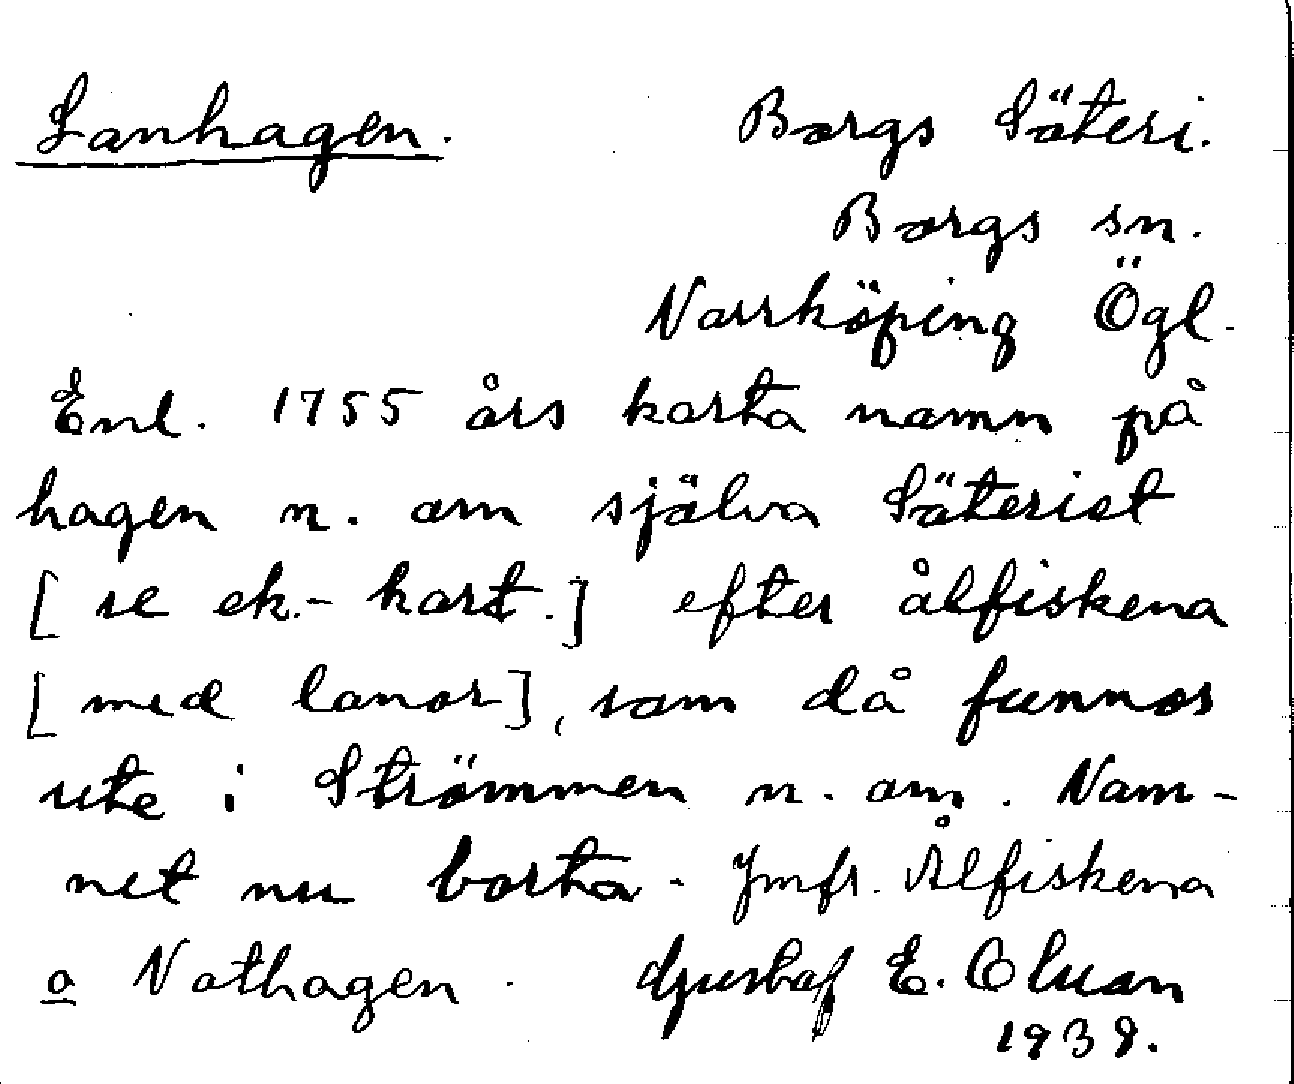 Lanhagen. Borgs Säteri.
Borgs sn.
Norrköping Ögl.
Enl. 1755 års karta namn på
hagen n. om själva Säteriet
[se ek.-kart.] efter ålfiskena
[med lanor], som då funnos
ute i Strömmen n. om. Nam-
net nu borta. Jmfr. Ålfiskena
o Nothagen. Gustaf E. Oluan
1938.